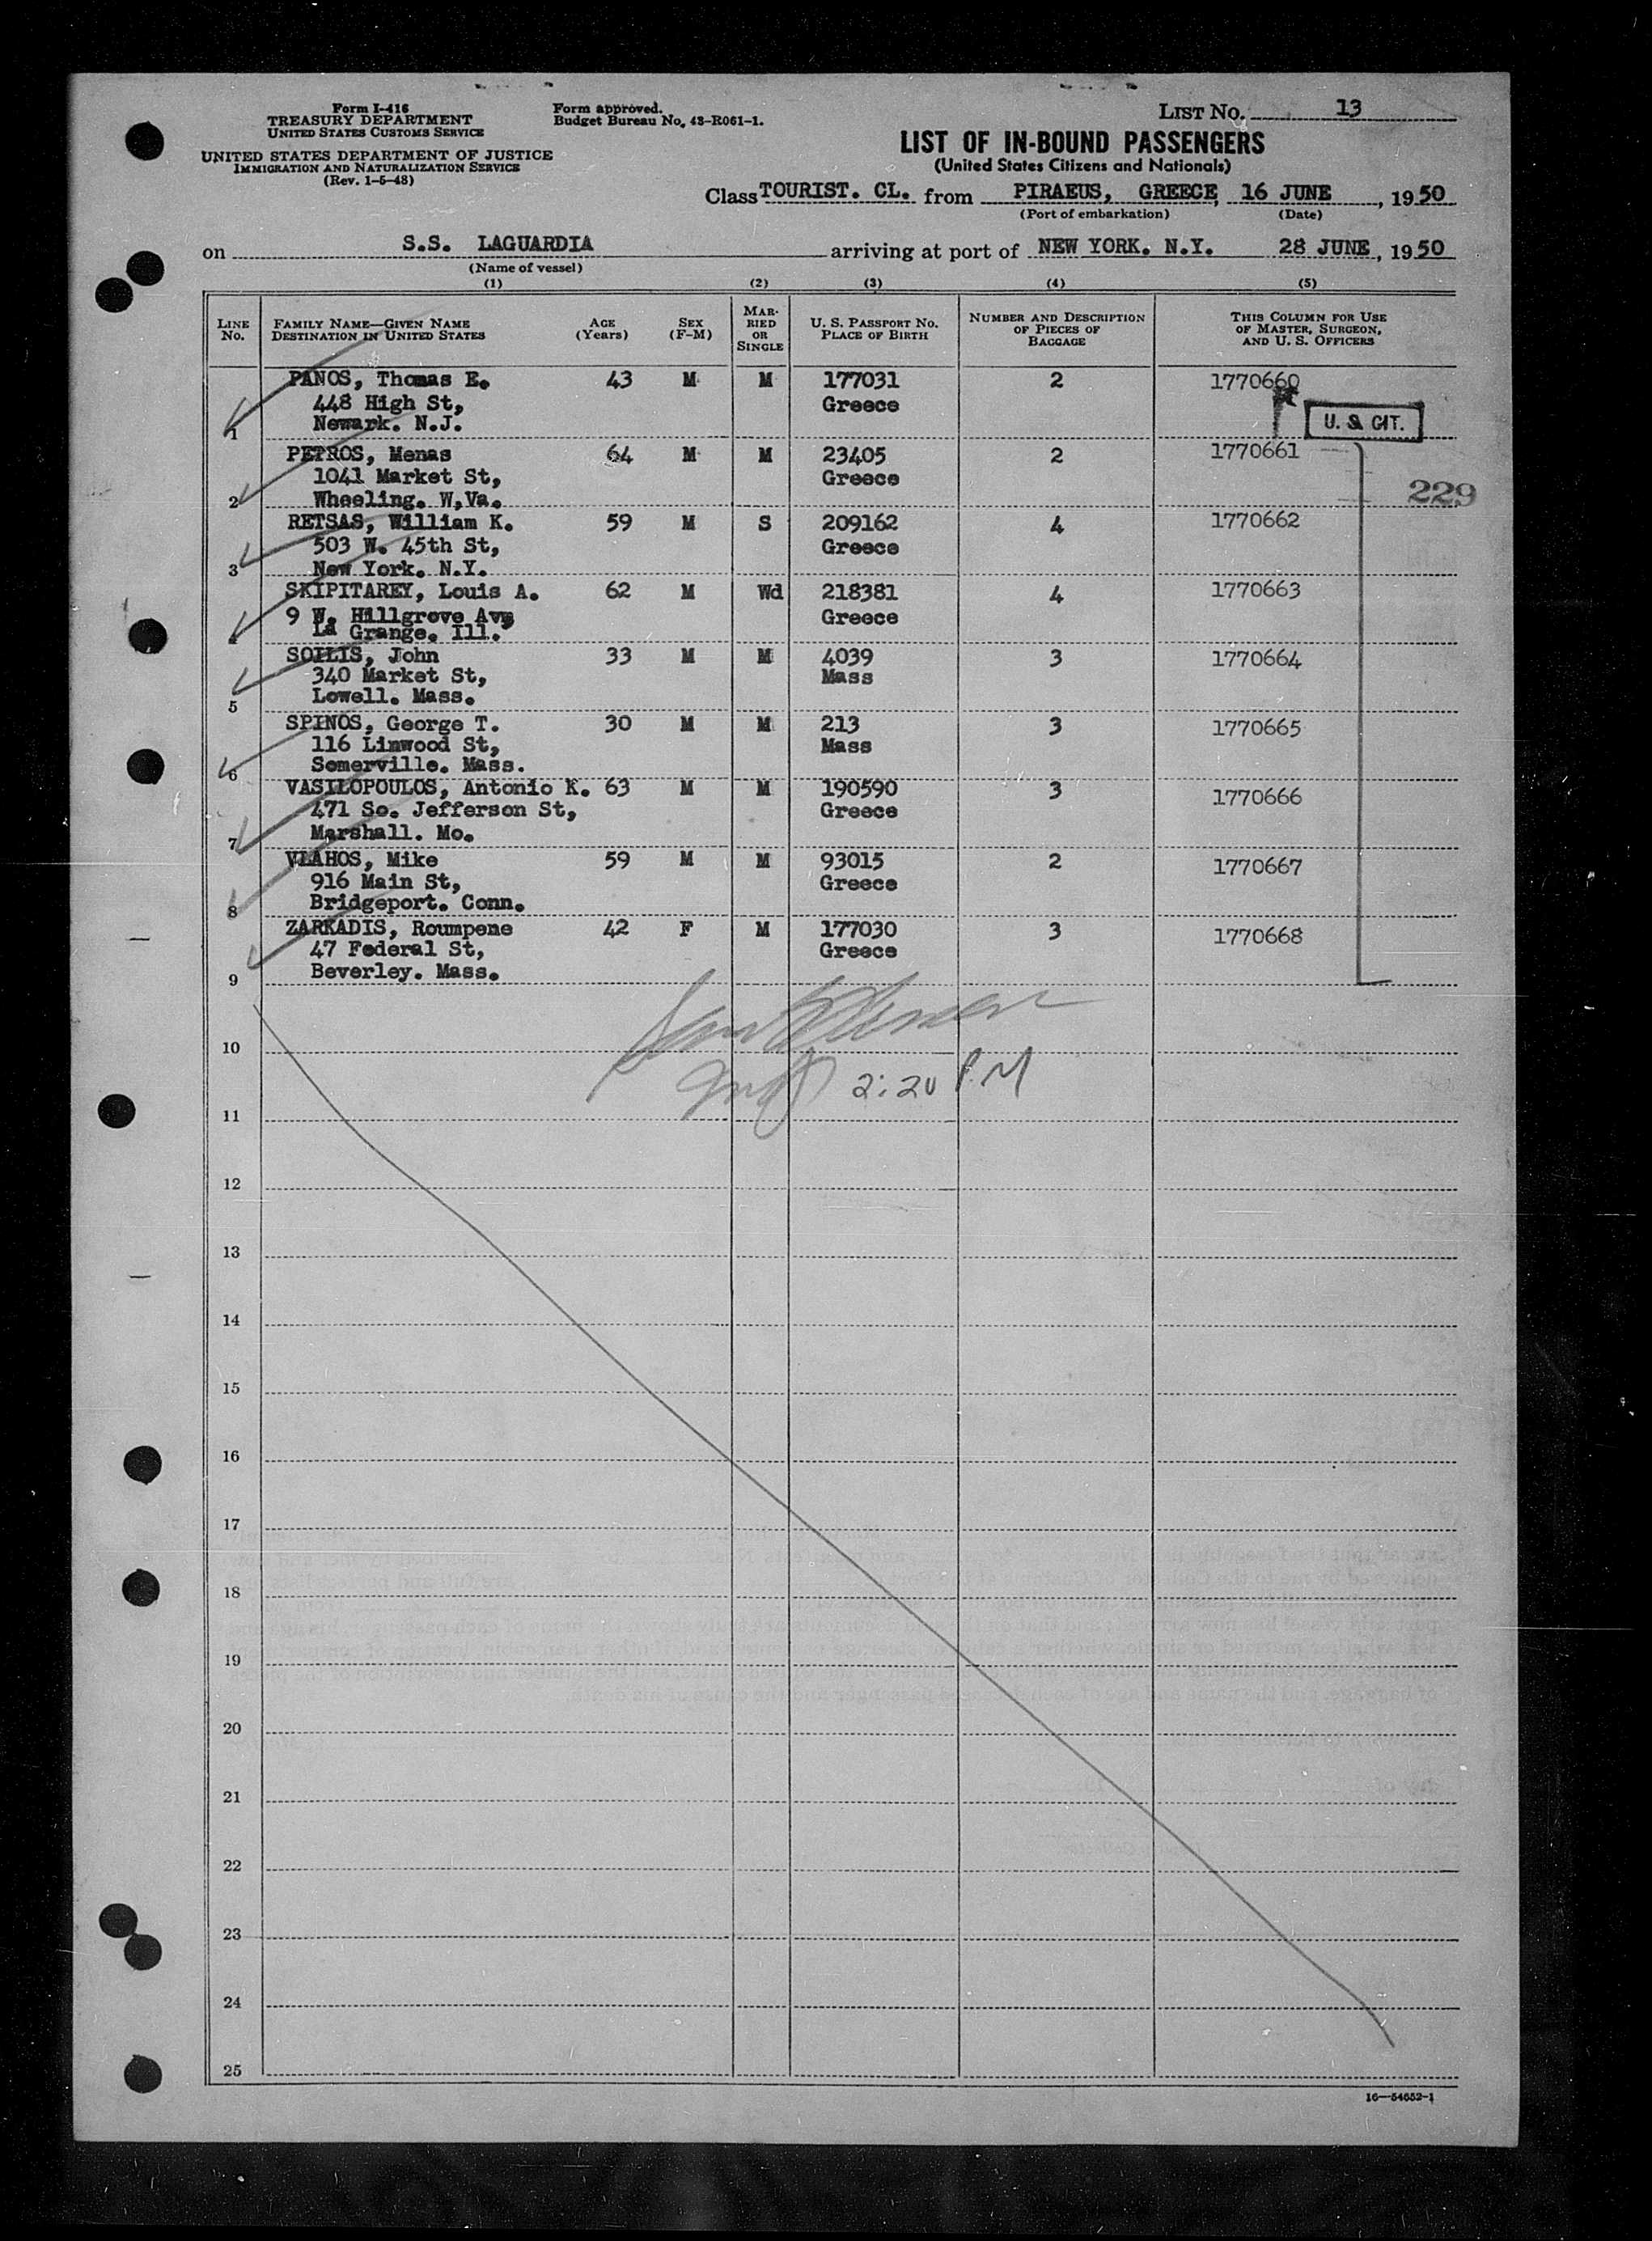 Form I-416
TREASURY DEPARTMENT
UNITED STATES CUSTOMS SERVICE
UNITED STATES DEPARTMENT OF JUSTICE
IMMIGRATION AND NATURALIZATION SERVICE
(Rev. 1-5-48)
Form approved.
Budget Bureau No. 43-R061-1.
LIST NO. 13
LIST OF IN-BOUND PASSENGERS
(United States Citizens and Nationals)
Class TOURIST. CL. from PIRAEUS, GREECE, 16 JUNE, 1950
(Port of embarkation) (Date)
on S.S. LAGUARDIA arriving at port of NEW YORK. N.Y. 28 JUNE, 1950
(Name of vessel)
(1) (2) (3) (4) (5)
LINE No. FAMILY NAME—GIVEN NAME DESTINATION IN UNITED STATES AGE (Years) SEX (F-M) MARRIED OR SINGLE U. S. PASSPORT NO. PLACE OF BIRTH NUMBER AND DESCRIPTION OF PIECES OF BAGGAGE THIS COLUMN FOR USE OF MASTER, SURGEON, AND U. S. OFFICERS
PANOS, Thomas E. 43 M M 177031 2 1770660
448 High St, Greece
1 Newark. N.J. U. S. CIT.
PETROS, Menas 64 M M 23405 2 1770661
1041 Market St, Greece
2 Wheeling. W,Va. 229
RETSAS, William K. 59 M S 209162 4 1770662
503 W. 45th St, Greece
3 New York. N.Y.
SKIPITAREY, Louis A. 62 M Wd 218381 4 1770663
9 W. Hillgrove Ave Greece
4 La Grange. Ill.
SOILIS, John 33 M M 4039 3 1770664
340 Market St, Mass
5 Lowell. Mass.
SPINOS, George T. 30 M M 213 3 1770665
116 Linwood St, Mass
6 Somerville. Mass.
VASILOPOULOS, Antonio K. 63 M M 190590 3 1770666
471 So. Jefferson St, Greece
7 Marshall. Mo.
VLAHOS, Mike 59 M M 93015 2 1770667
916 Main St, Greece
8 Bridgeport. Conn.
ZARKADIS, Roumpene 42 F M 177030 3 1770668
47 Federal St, Greece
9 Beverley. Mass.
10
2:20 P.M
11
12
13
14
15
16
17
18
19
20
21
22
23
24
25
16—54652-1